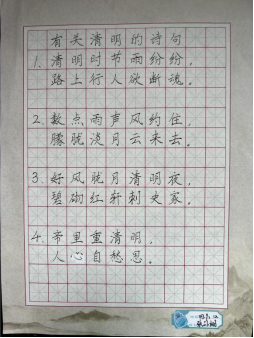 有关清明的诗句
1. 清明时节雨纷纷，
路上行人欲断魂。
2. 数点雨声风约住，
朦胧淡月云来去。
3. 好风胧月清明夜，
碧砌红轩刺史家。
4. 帝里重清明，
人心自愁思。